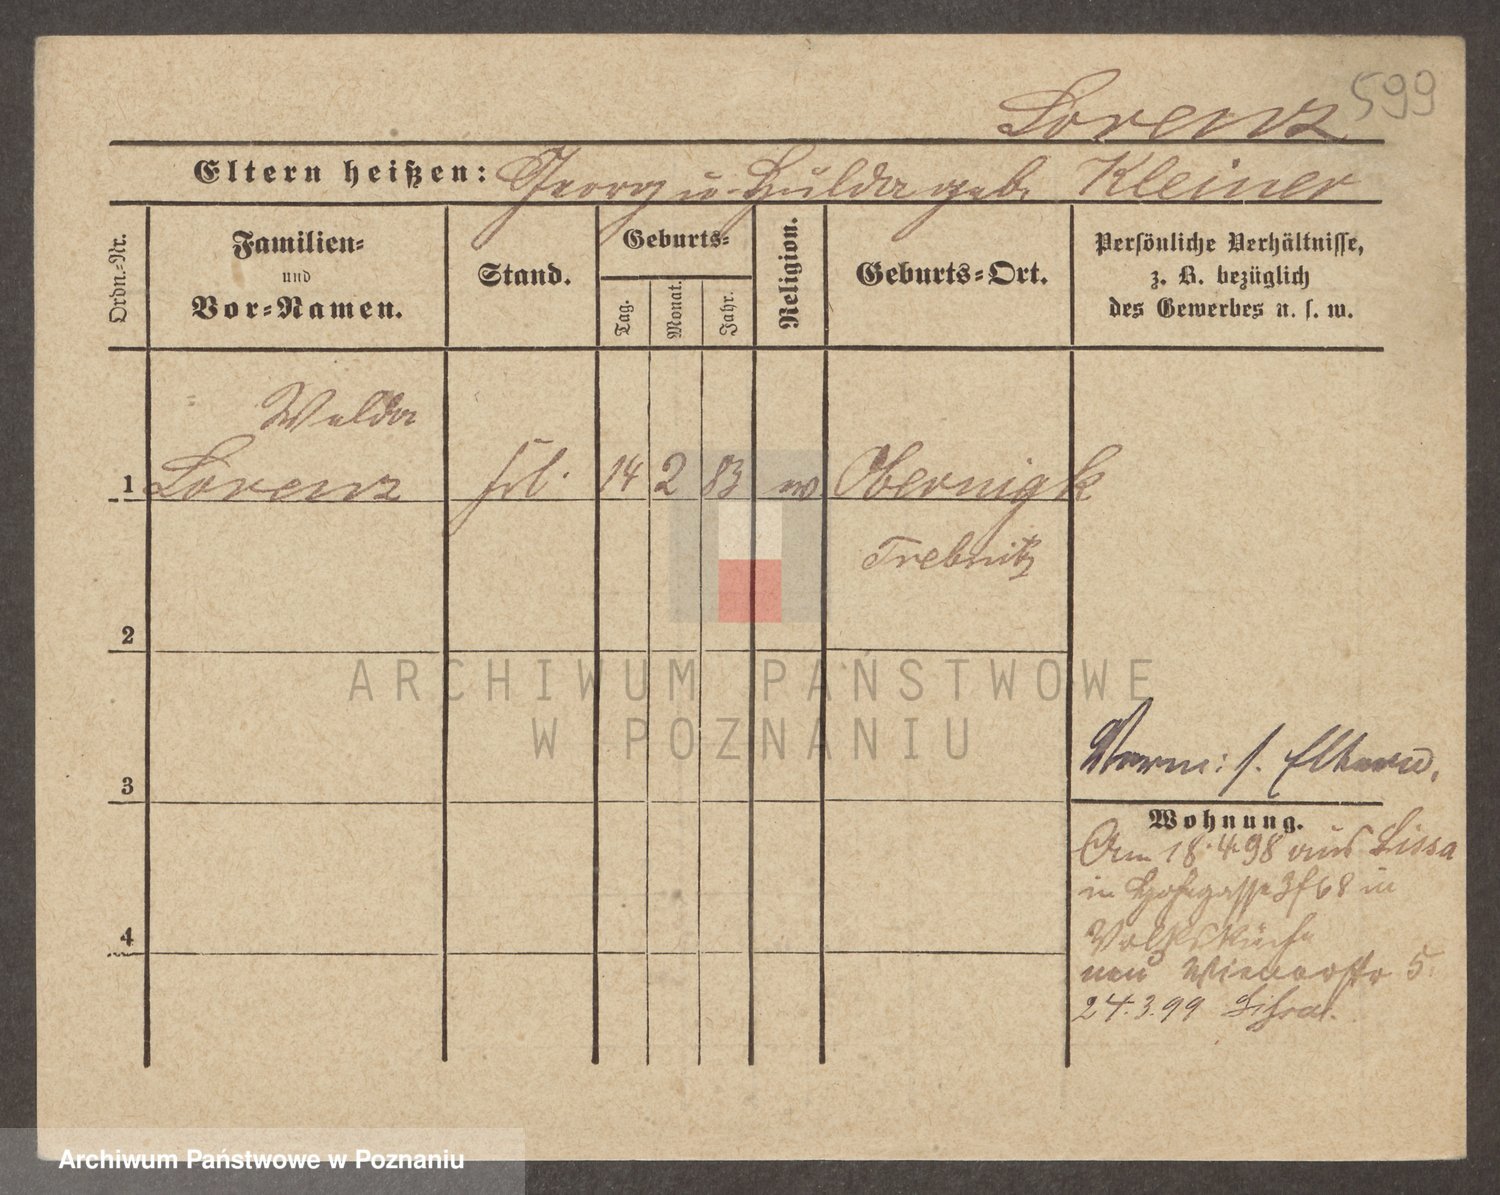 599
Lorenz
Eltern heißen: Georg u. Hulda geb. Kleiner
Ordn.-Nr.
Familien-
und
Vor-Namen.
Stand.
Geburts-
Tag.
Monat.
Jahr.
Religion.
Geburts-Ort.
Persönliche Verhältnisse,
z. B. bezüglich
des Gewerbes u. s. w.
Walda
1 Lorenz frl. 14 2 83 ev Obernigk
Trebnitz
2
3
4
Verm: s. Eltern.
Wohnung.
Am 18.4.98 aus Lissa
in in
Volksküche
neu Wienerstr 5.
24.3.99
ARCHIWUM PAŃSTWOWE
W POZNANIU
Archiwum Państwowe w Poznaniu